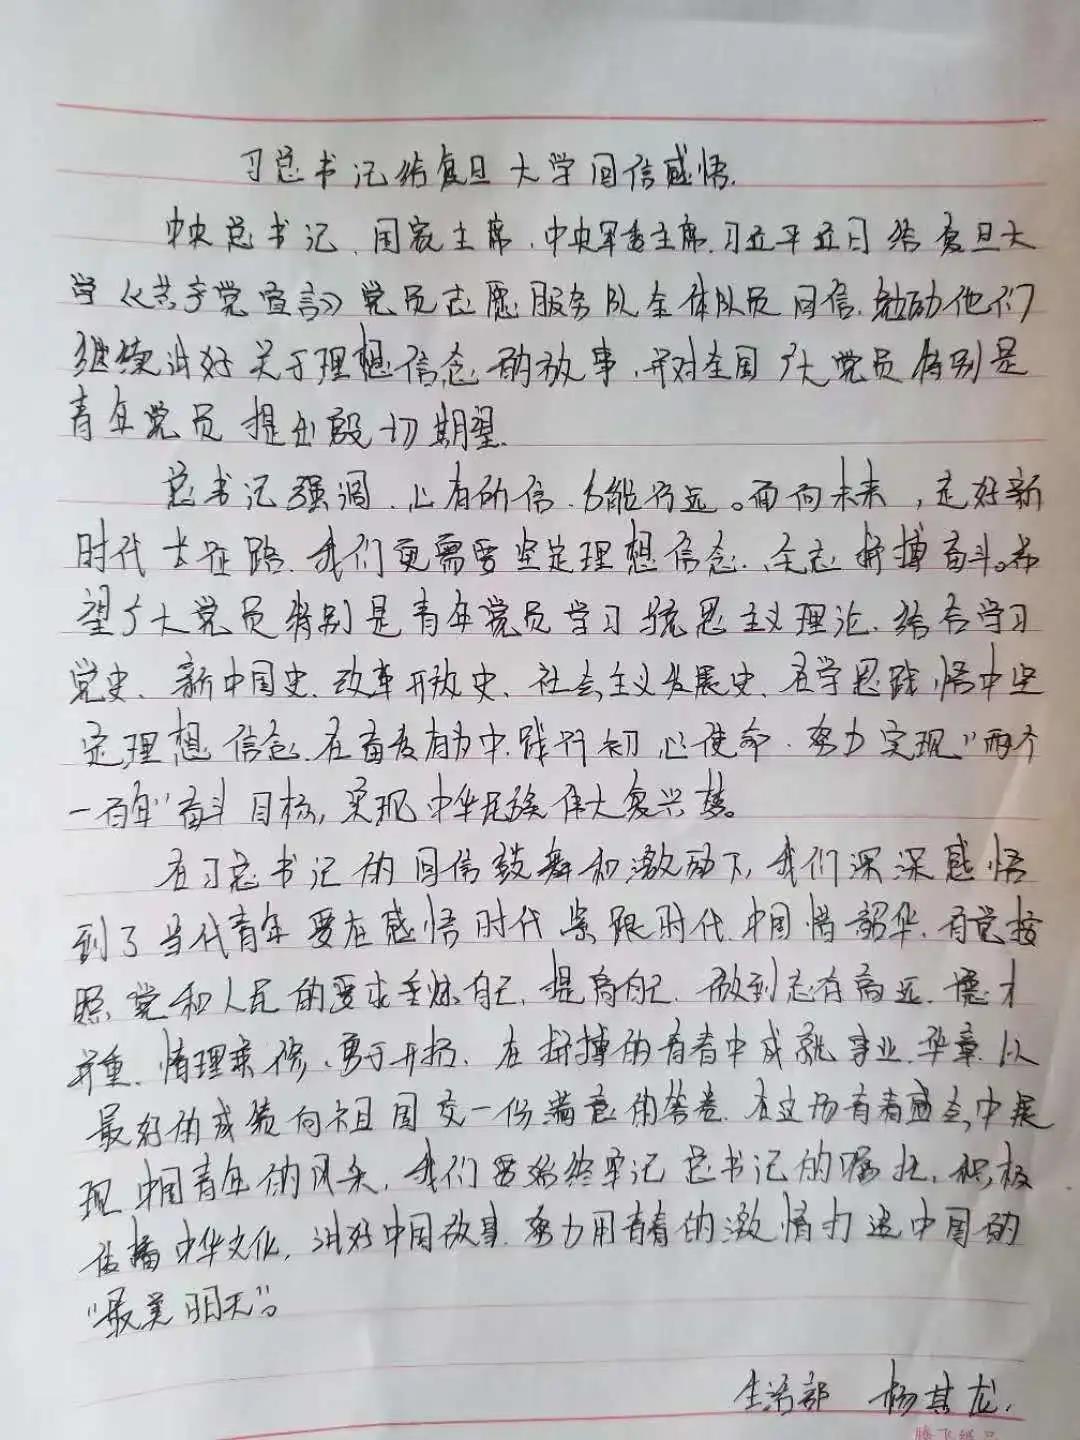 习总书记给复旦大学回信感悟.
中央总书记、国家主席、中央军委主席习近平近日给复旦大
学《共产党宣言》党员志愿服务队全体队员回信,勉励他们
继续讲好关于理想信念的故事,并对全国广大党员特别是
青年党员提出殷切期望.
总书记强调,心有所信,方能行远。面向未来,走好新
时代长征路,我们更需要坚定理想信念、矢志拼搏奋斗。希
望广大党员特别是青年党员学习马克思主义理论、结合学习
党史、新中国史、改革开放史、社会主义发展史、在学思践悟中坚
定理想信念,在奋发有为中践行初心使命,努力实现“两个
一百年”奋斗目标,实现中华民族伟大复兴梦。
在习总书记的回信鼓舞和激励下,我们深深感悟
到了当代青年要在感悟时代紧跟时代中国惜韶华,自觉按
照党和人民的要求垂炼自己、提高自己,做到志有高远、德才
并重、情理兼修、勇于开拓,在拼搏的青春中成就事业华章,以
最好的成绩向祖国交一份满意的答卷,在这场青春盛会中展
现中国青年的风采,我们要始终牢记总书记的嘱托,积极
传播中华文化,讲好中国故事,努力用青春的激情打造中国的
“最美明天”。
生活部 杨其龙.
腾飞纸品